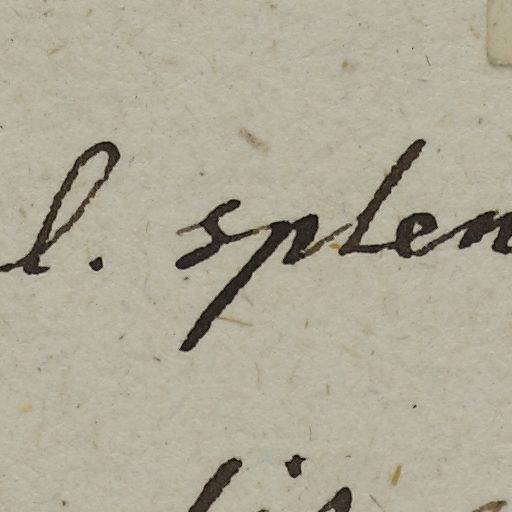 l. splen